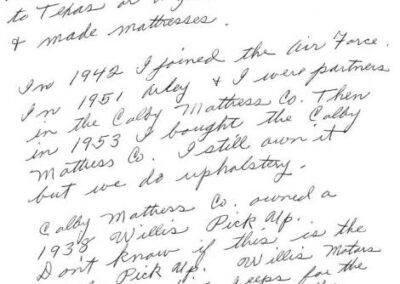 to Texas or
& made mattresses.
In 1942 I joined the Air Force.
In 1951 Arley & I were partners
in the Colby Mattress Co. Then
in 1953 I bought the Colby
Mattress Co. I still own it
but we do upholstery.
Colby Mattress Co. owned a
1938 Willis Pick Up.
Don't know if this is the
Pick Up. Willis Motors
for the